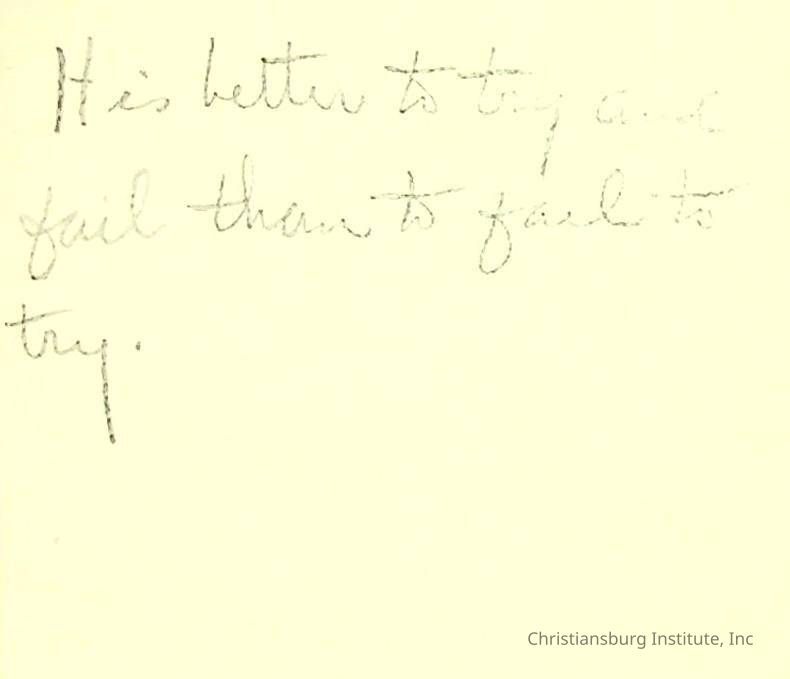 It is better to try and
fail than to fail to
try.
Christiansburg Institute, Inc